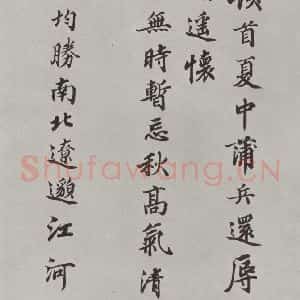 首夏中蒲兵還辱
遥懷
無時暫忘秋髙氣清
均勝南北遼邈江河
Shufawang.CN